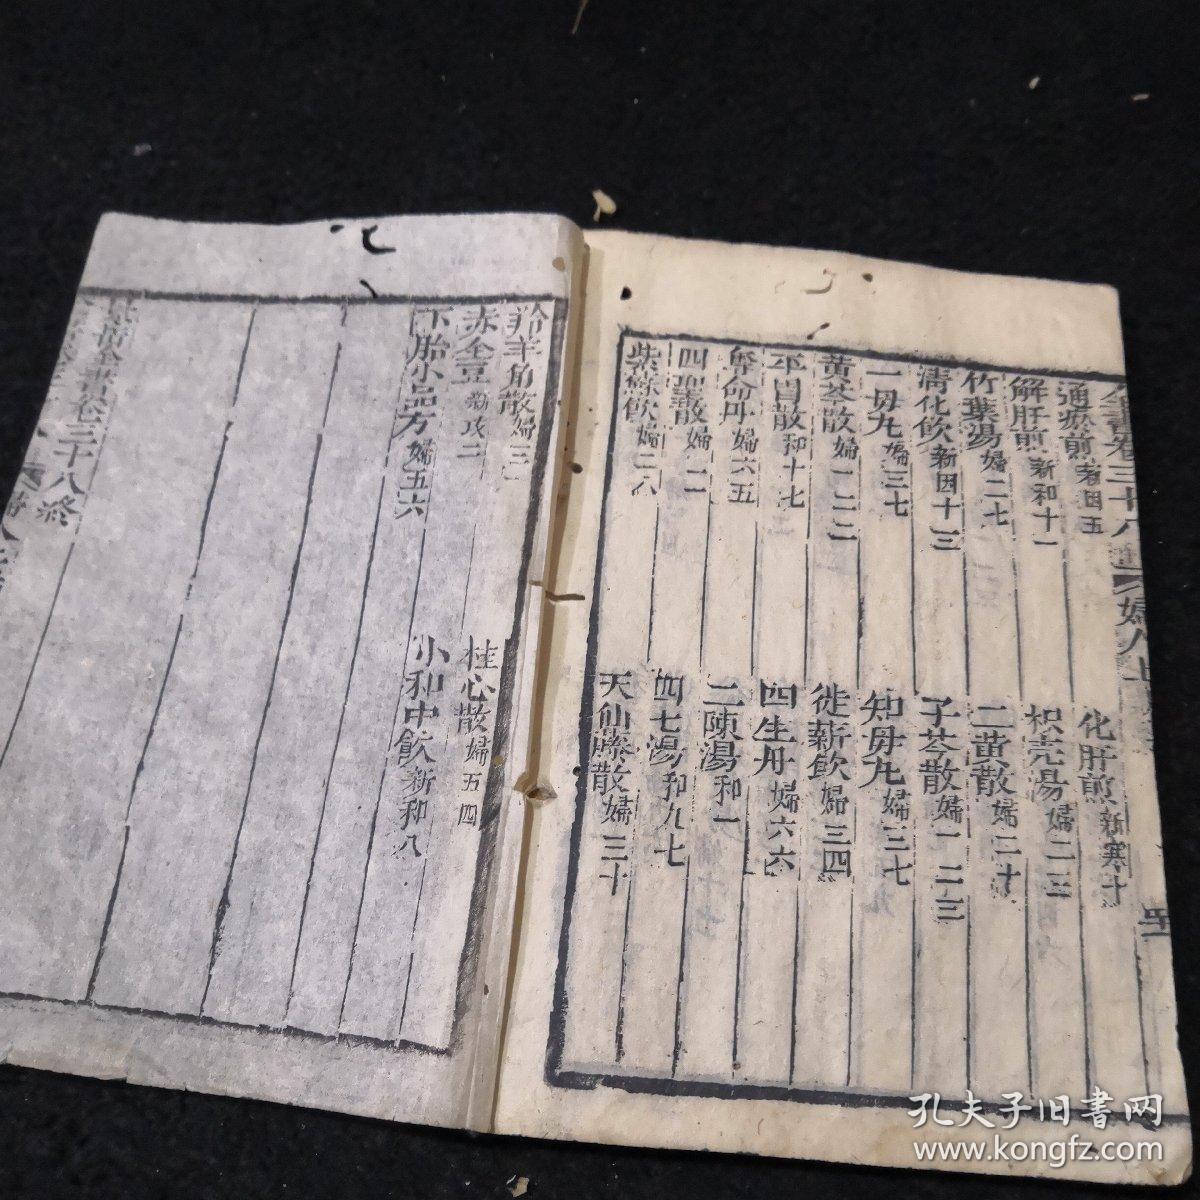 全書卷三十八 婦人上
通瘀煎新因五 化肝煎新寒十
解肝煎新和十一 枳壳湯婦二三
竹葉湯婦二七 二黃散婦二十
清化飲新因十三 子芩散婦一二三
一母丸婦三七 知母丸婦三七
黄芩散婦一二二 徙薪飲婦三四
平胃散和十七 四生丹婦六六
奪命丹婦六五 二陳湯和一
四聖散婦二一 四七湯和九七
紫蘇飲婦二八 天仙藤散婦三十
羚羊角散婦三一
赤金豆新攻二 桂心散婦五四
下胎小品方婦五六 小和中飲新和八
景岳全書卷三十八終
孔夫子旧書网
www.kongfz.com